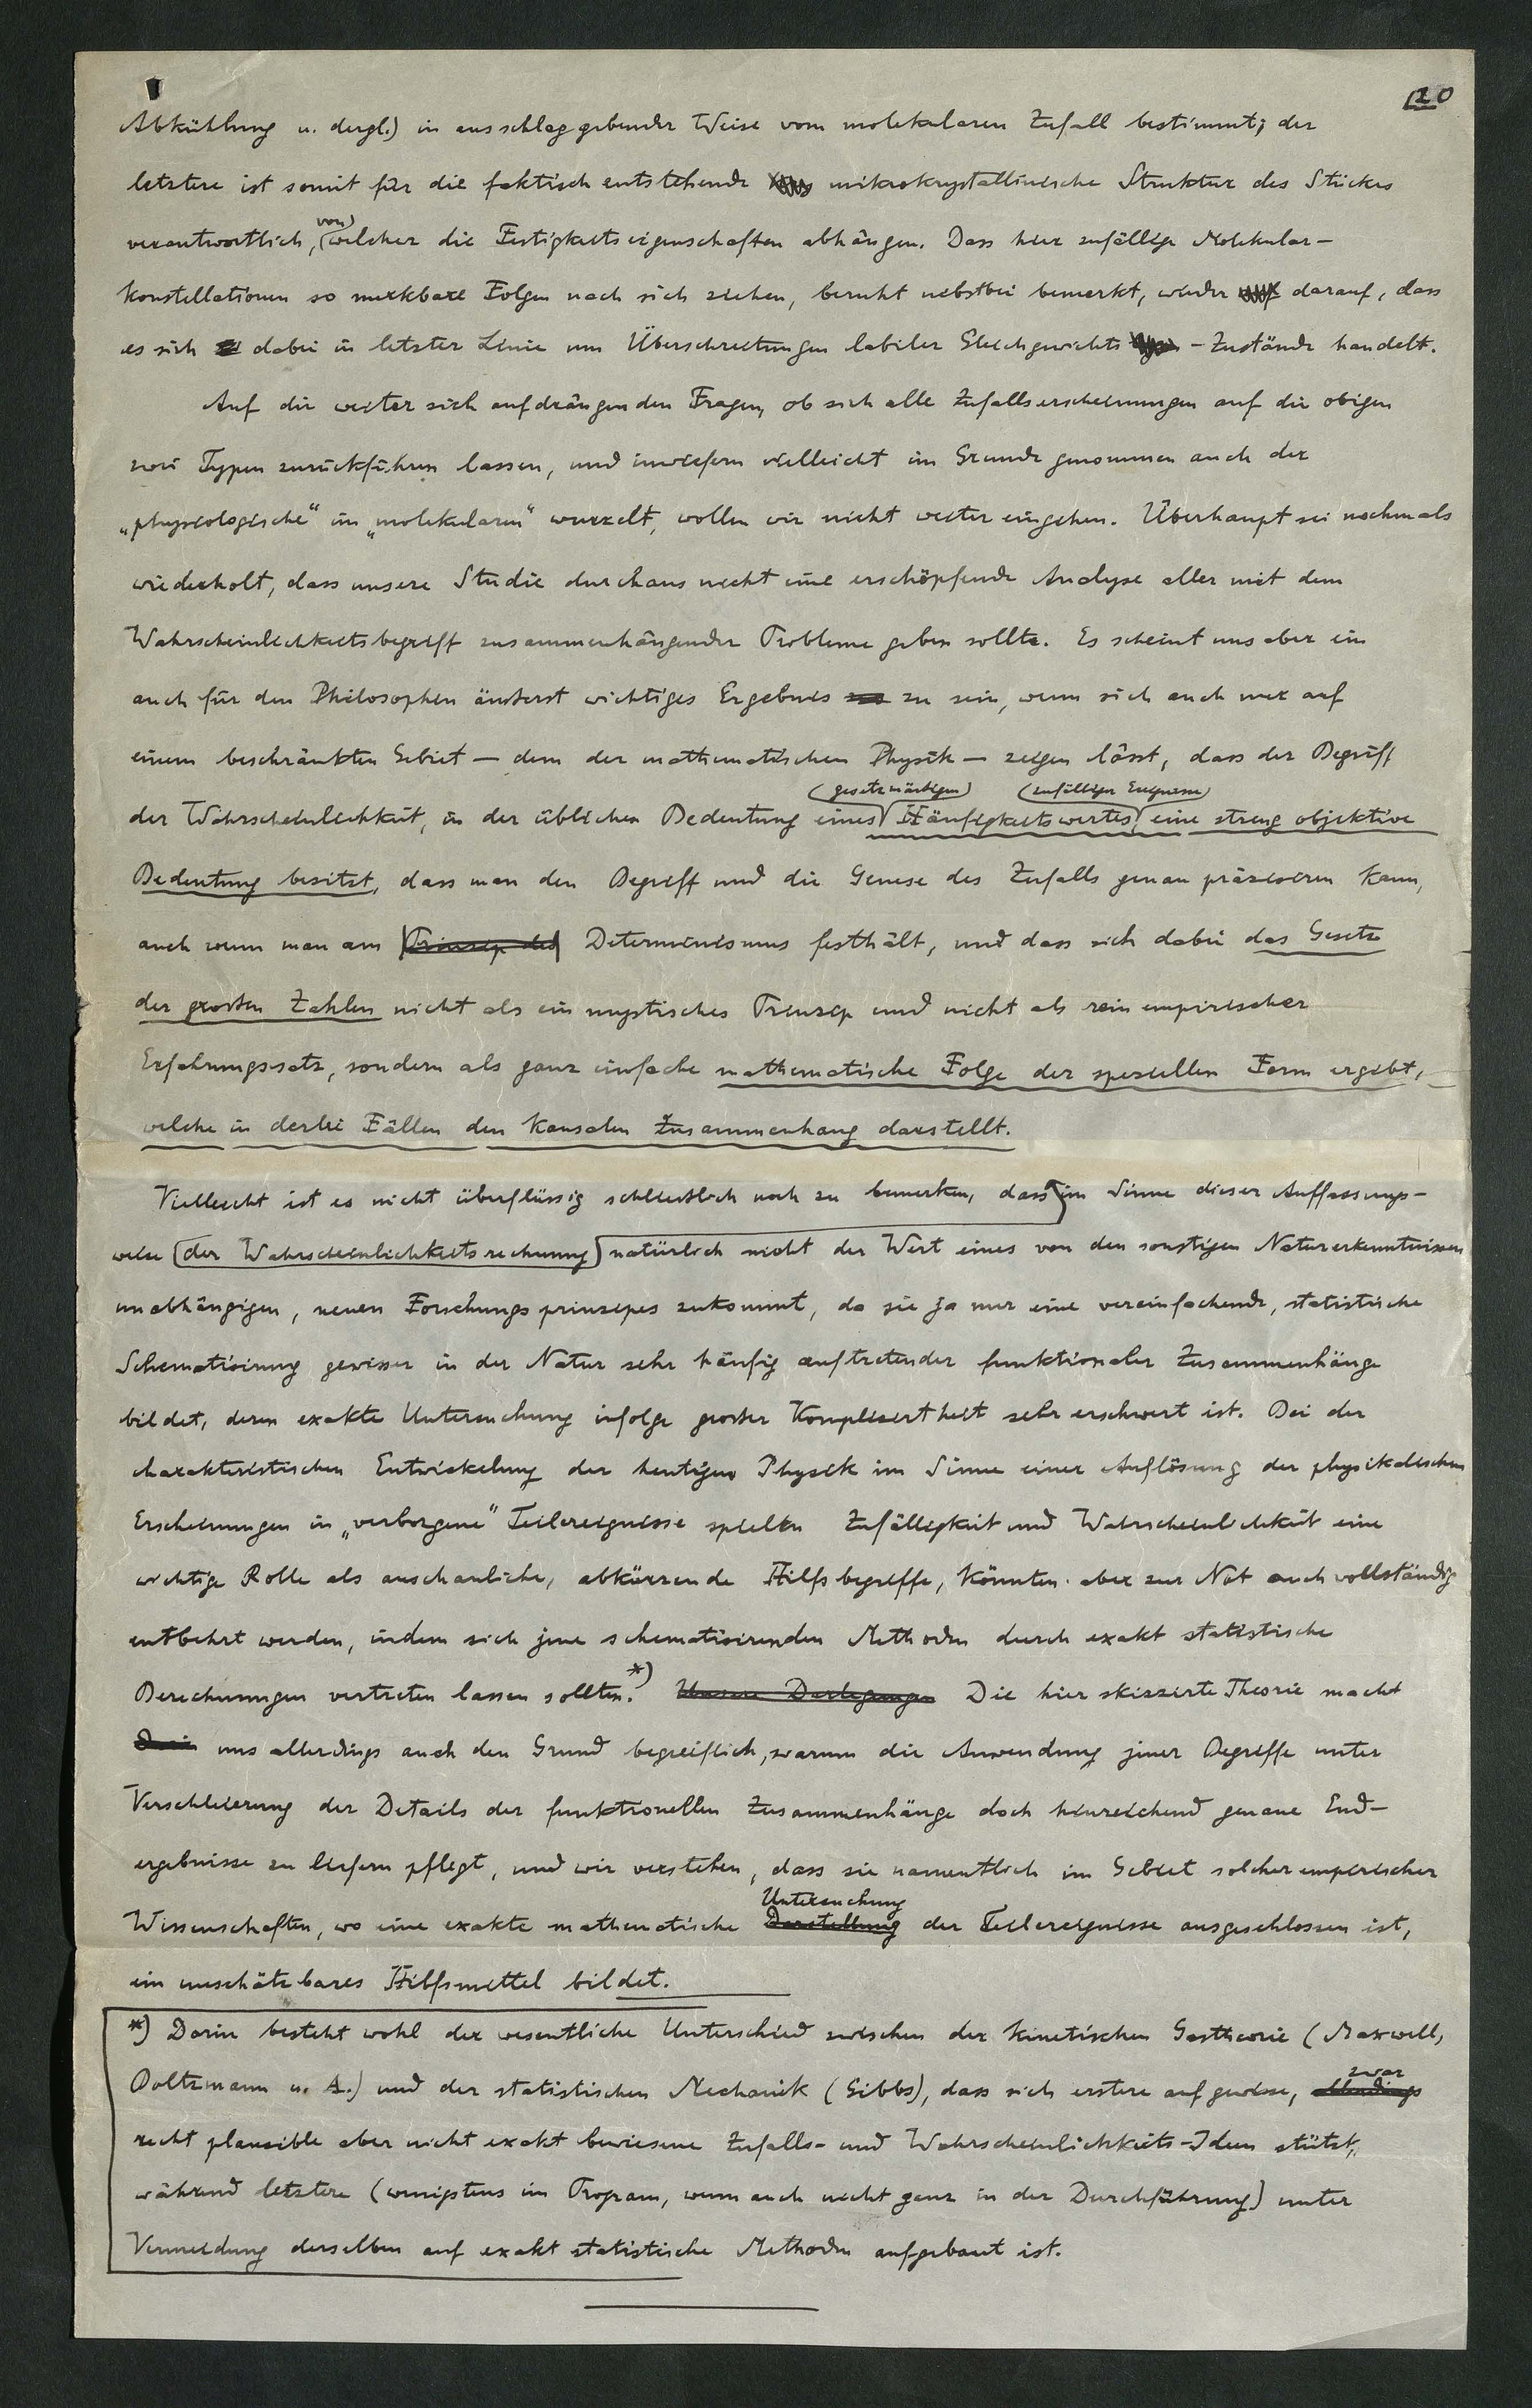 20
Abkühlung u. dergl.) in ausschlaggebender Weise vom molekularen Zufall bestimmt; der
letztere ist somit für die faktisch entstehende mikrokrystallinische Struktur des Stückes
verantwortlich, von welcher die Festigkeitseigenschaften abhängen. Dass hier zufällige Molekular-
konstellationen so merkbare Folgen nach sich ziehen, beruht nebstbei bemerkt, wieder darauf, dass
es sich dabei in letzter Linie um Überschreitungen labiler Gleichgewichts-Zustände handelt.
Auf die weiter sich aufdrängenden Fragen, ob sich alle Zufallserscheinungen auf die obigen
zwei Typen zurückführen lassen, und inwiefern vielleicht im Grunde genommen auch der
„physiologische“ im „molekularen“ wurzelt, wollen wir nicht weiter eingehen. Überhaupt sei nochmals
wiederholt, dass unsere Studie durchaus nicht eine erschöpfende Analyse aller mit dem
Wahrscheinlichkeitsbegriff zusammenhängender Probleme geben sollte. Es scheint uns aber ein
auch für den Philosophen äusserst wichtiges Ergebnis zu sein, wenn sich auch nur auf
einem beschränkten Gebiet — dem der mathematischen Physik — zeigen lässt, dass der Begriff
der Wahrscheinlichkeit, in der üblichen Bedeutung eines gesetzmässigen Häufigkeitswertes zufälliger Ereignisse, eine streng objektive
Bedeutung besitzt, dass man den Begriff und die Genese des Zufalls genau präzisieren kann,
auch wenn man am Prinzip des Determinismus festhält, und dass sich dabei das Gesetz
der grossen Zahlen nicht als ein mystisches Prinzip und nicht als rein empirischer
Erfahrungssatz, sondern als ganz einfache mathematische Folge der speziellen Form ergibt,
welche in derlei Fällen den kausalen Zusammenhang darstellt.
Vielleicht ist es nicht überflüssig schliesslich noch zu bemerken, dass im Sinne dieser Auffassungs-
weise der Wahrscheinlichkeitsrechnung natürlich nicht der Wert eines von den sonstigen Naturerkenntnissen
unabhängigen, neuen Forschungsprinzipes zukommt, da sie ja nur eine vereinfachende, statistische
Schematisirung gewisser in der Natur sehr häufig auftretender funktionaler Zusammenhänge
bildet, deren exakte Untersuchung infolge grosser Kompliziertheit sehr erschwert ist. Bei der
charakteristischen Entwickelung der heutigen Physik im Sinne einer Auflösung der physikalischen
Erscheinungen in „verborgene“ Teilereignisse spielen Zufälligkeit und Wahrscheinlichkeit eine
wichtige Rolle als anschauliche, abkürzende Hilfsbegriffe, könnten aber zur Not auch vollständig
entbehrt werden, indem sich jene schematisirenden Methoden durch exakt statistische
Berechnungen vertreten lassen sollten.*) Unsere Darlegungen Die hier skizzirte Theorie macht
uns allerdings auch den Grund begreiflich, warum die Anwendung jener Begriffe unter
Verschleierung der Details der funktionellen Zusammenhänge doch hinreichend genaue End-
ergebnisse zu liefern pflegt, und wir verstehen, dass sie namentlich im Gebiet solcher empirischer
Wissenschaften, wo eine exakte mathematische Darstellung Untersuchung der Teilereignisse ausgeschlossen ist,
ein unschätzbares Hilfsmittel bildet.
*) Darin besteht wohl der wesentliche Unterschied zwischen der kinetischen Gastheorie (Maxwell,
Boltzmann u. A.) und der statistischen Mechanik (Gibbs), dass sich erstere auf gewisse, allerdings zwar
recht plausible aber nicht exakt bewiesene Zufalls- und Wahrscheinlichkeits-Ideen stützt,
während letztere (wenigstens im Program, wenn auch nicht ganz in der Durchführung) unter
Vermeidung derselben auf exakt statistische Methoden aufgebaut ist.